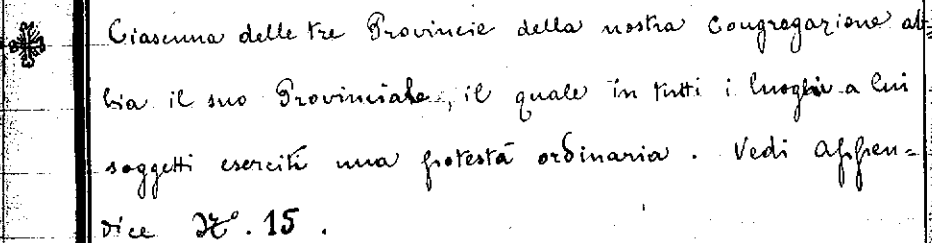 Ciascuna delle tre Provincie della nostra Congregazione ab=
bia il suo Provinciale, il quale in tutti i luoghi a lui
soggetti eserciti una potestà ordinaria. Vedi Appen=
dice N.º 15.